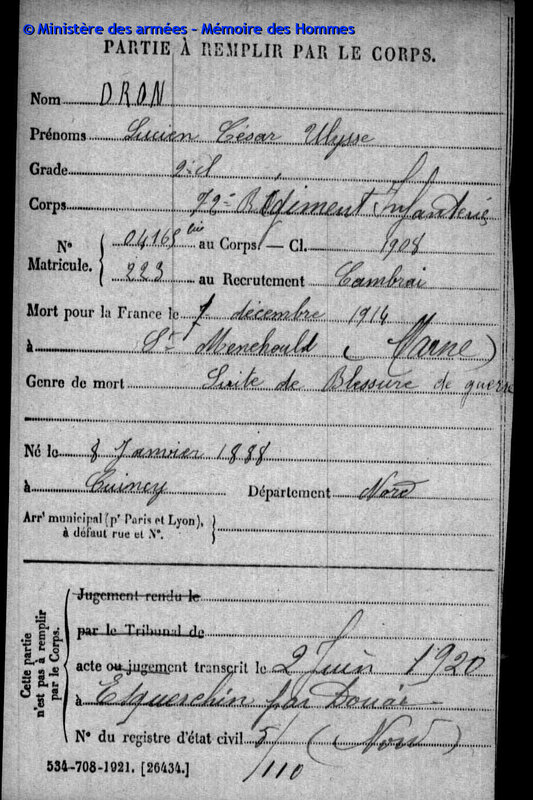 © Ministère des armées - Mémoire des Hommes
PARTIE À REMPLIR PAR LE CORPS.
Nom DRON
Prénoms Lucien César Ulysse
Grade 2e cl
Corps 72e Régiment Infanterie
Nº Matricule. 04165 bis au Corps. — Cl. 1908
223 au Recrutement Cambrai
Mort pour la France le 7 décembre 1914
à St Menehould (Marne)
Genre de mort Suite de Blessure de guerre
Né le 8 Janvier 1888
à Cuincy Département Nord
Arrt municipal (pr Paris et Lyon),
à défaut rue et Nº.
Cette partie
n'est pas à remplir
par le Corps.
Jugement rendu le
par le Tribunal de
acte ou jugement transcrit le 2 Juin 1920
à Esquerchin par Douai
Nº du registre d'état civil 5/110 (Nord)
534-708-1921. [26434.]